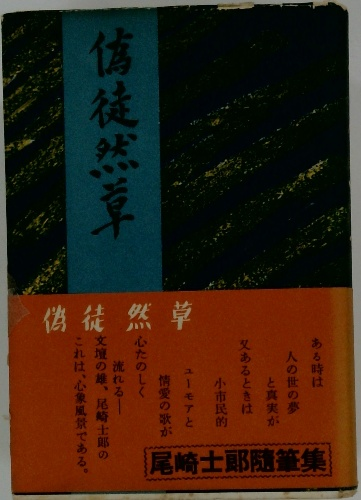 偽徒然草
偽徒然草
ある時は
人の世の夢
と真実が
又あるときは
小市民的
ユーモアと
情愛の歌が
心たのしく
流れる——
文壇の雄、尾崎士郎の
これは、心象風景である。
尾崎士郎随筆集